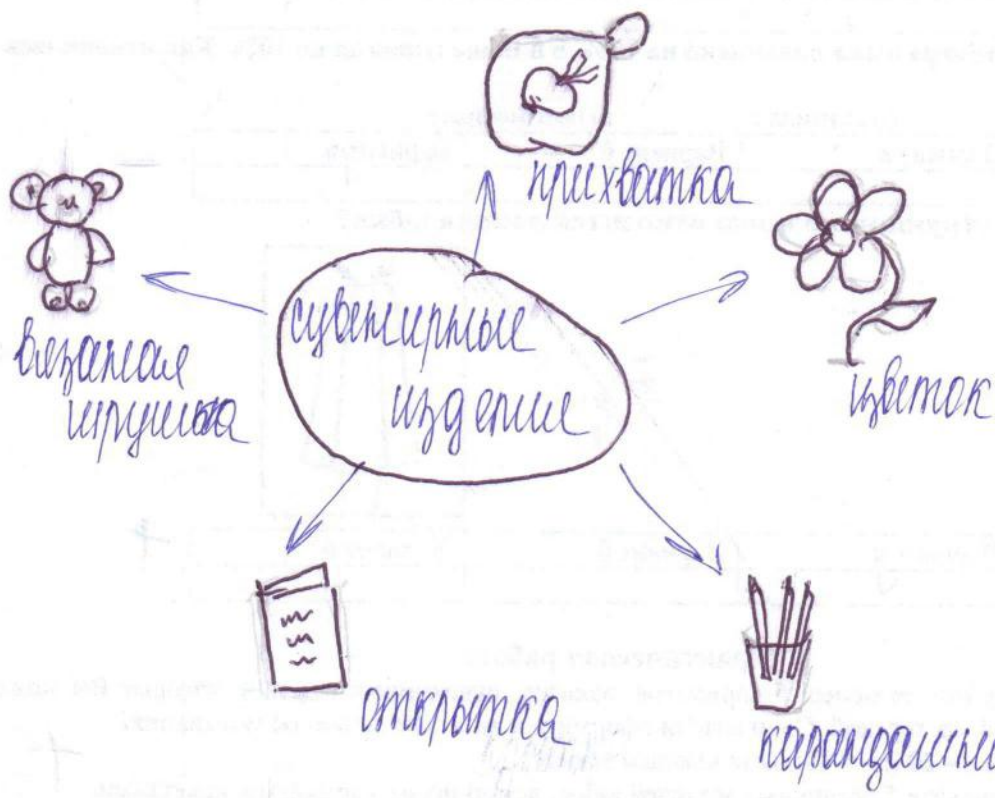 прихватка
вязаная
игрушка
сувенирные
изделия
цветок
открытка
карандашни